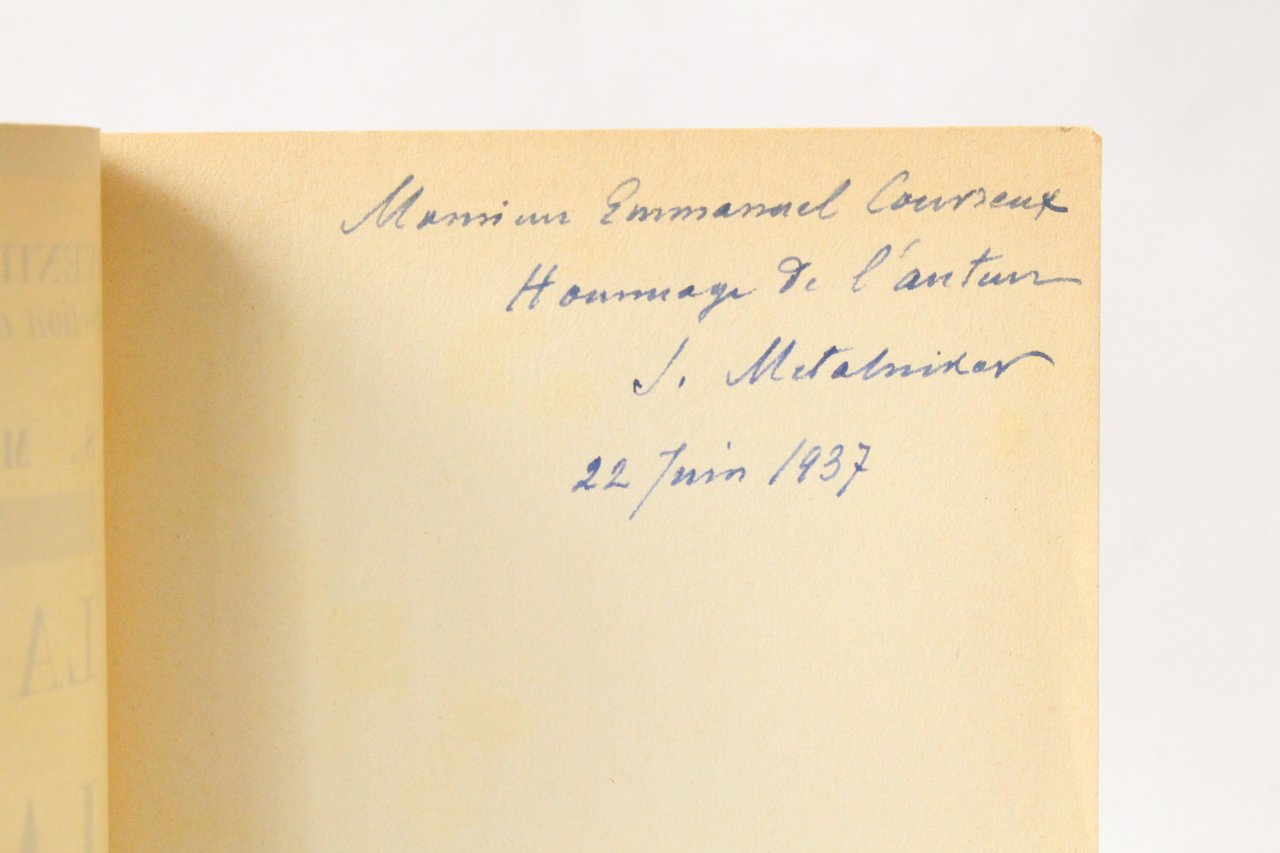 Monsieur Emmanuel Courreux
Hommage de l'auteur
S. Metalnikov
22 Juin 1937
LA